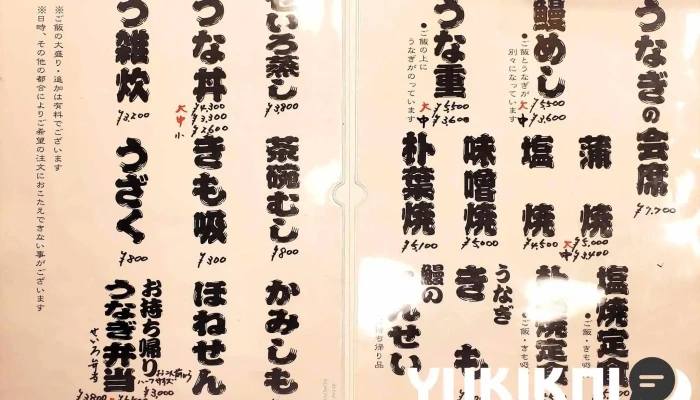 うなぎの会席
¥7,700
鰻めし
●ご飯とうなぎが
別々になっています
大 ¥5,500
中 ¥3,600
うな重
●ご飯の上に
うなぎがのっています
大 ¥5,500
中 ¥3,600
蒲焼
大 ¥5,000
中 ¥3,400
塩焼
¥4,500
味噌焼
¥5,000
朴葉焼
¥5,100
塩焼定食
ご飯・きも吸
焼定
ご飯・きも
うなぎ
きも
鰻の
んせい
持ち帰り品
せいろ蒸し
¥3,800
うな丼
大 ¥4,300
中 ¥3,300
小 ¥2,600
う雑炊
¥3,200
茶碗むし
¥800
きも吸
¥300
うざく
¥800
かみしも
ほねせん
お持ち帰り
うなぎ弁当
ハーフサイズ
¥3,000
せいろ弁当
¥3,800
※ご飯の大盛り・追加は有料でございます
※日時、その他の都合によりご希望の注文におこたえできない事がございます
YUKIKNI